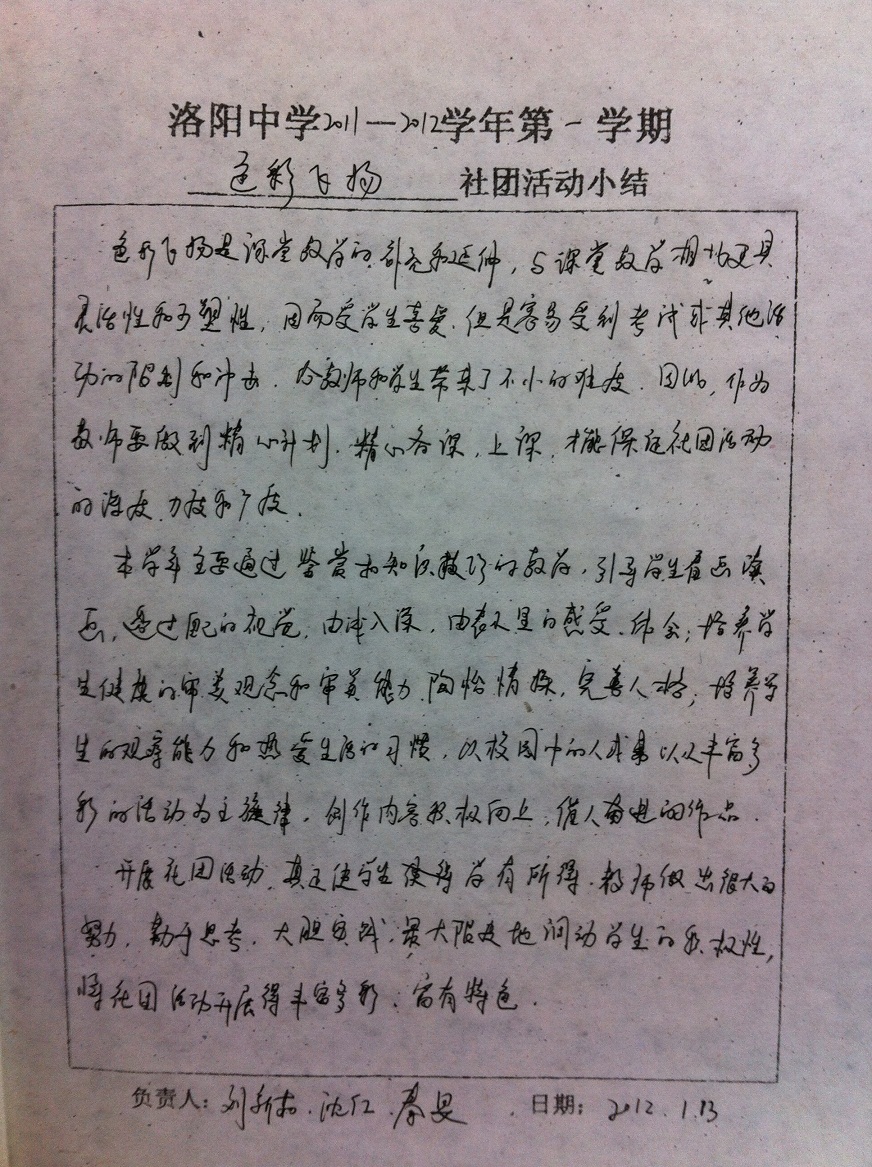 洛阳中学2011—2012学年第一学期
色彩飞扬 社团活动小结
色彩飞扬是课堂教学的补充和延伸，与课堂教学相比更具
灵活性和可塑性，因而受学生喜爱.但是容易受到考试或其他活
动的限制和冲击.给教师和学生带来了不小的难度.因此，作为
教师要做到精心计划.精心备课，上课，才能保证社团活动
的深度、力度和广度.
本学年主要通过鉴赏和知识技巧的教学，引导学生看画读
画，透过画的视觉，由浅入深，由表及里的感受.体会；培养学
生健康的审美观念和审美能力.陶怡情操，完善人格；培养学
生的观察能力和热爱生活的习惯，以校园中的人或事以及丰富多
彩的活动为主旋律，创作内容积极向上，催人奋进的作品.
开展社团活动，真正使学生学有所得.教师做出很大的
努力，勤于思考，大胆实践，最大限度地调动学生的积极性，
将社团活动开展得丰富多彩、富有特色.
负责人：刘新 .沈仁.秦旻 日期：2012.1.13